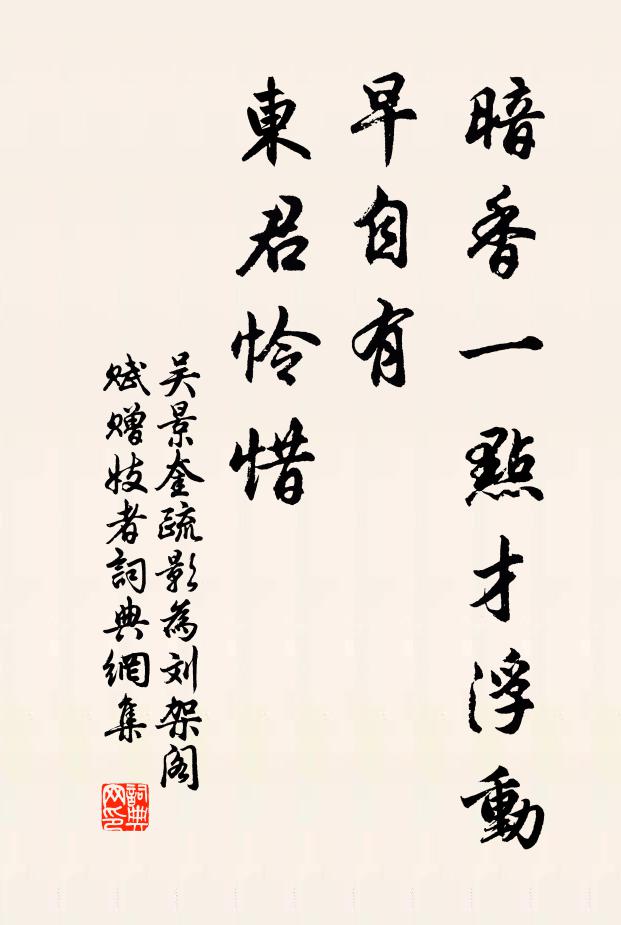 暗香一點才浮動
早自有
東君怜惜
吴景奎疏影為刘架阁
赋赠妓者詞典網集
詞典网印